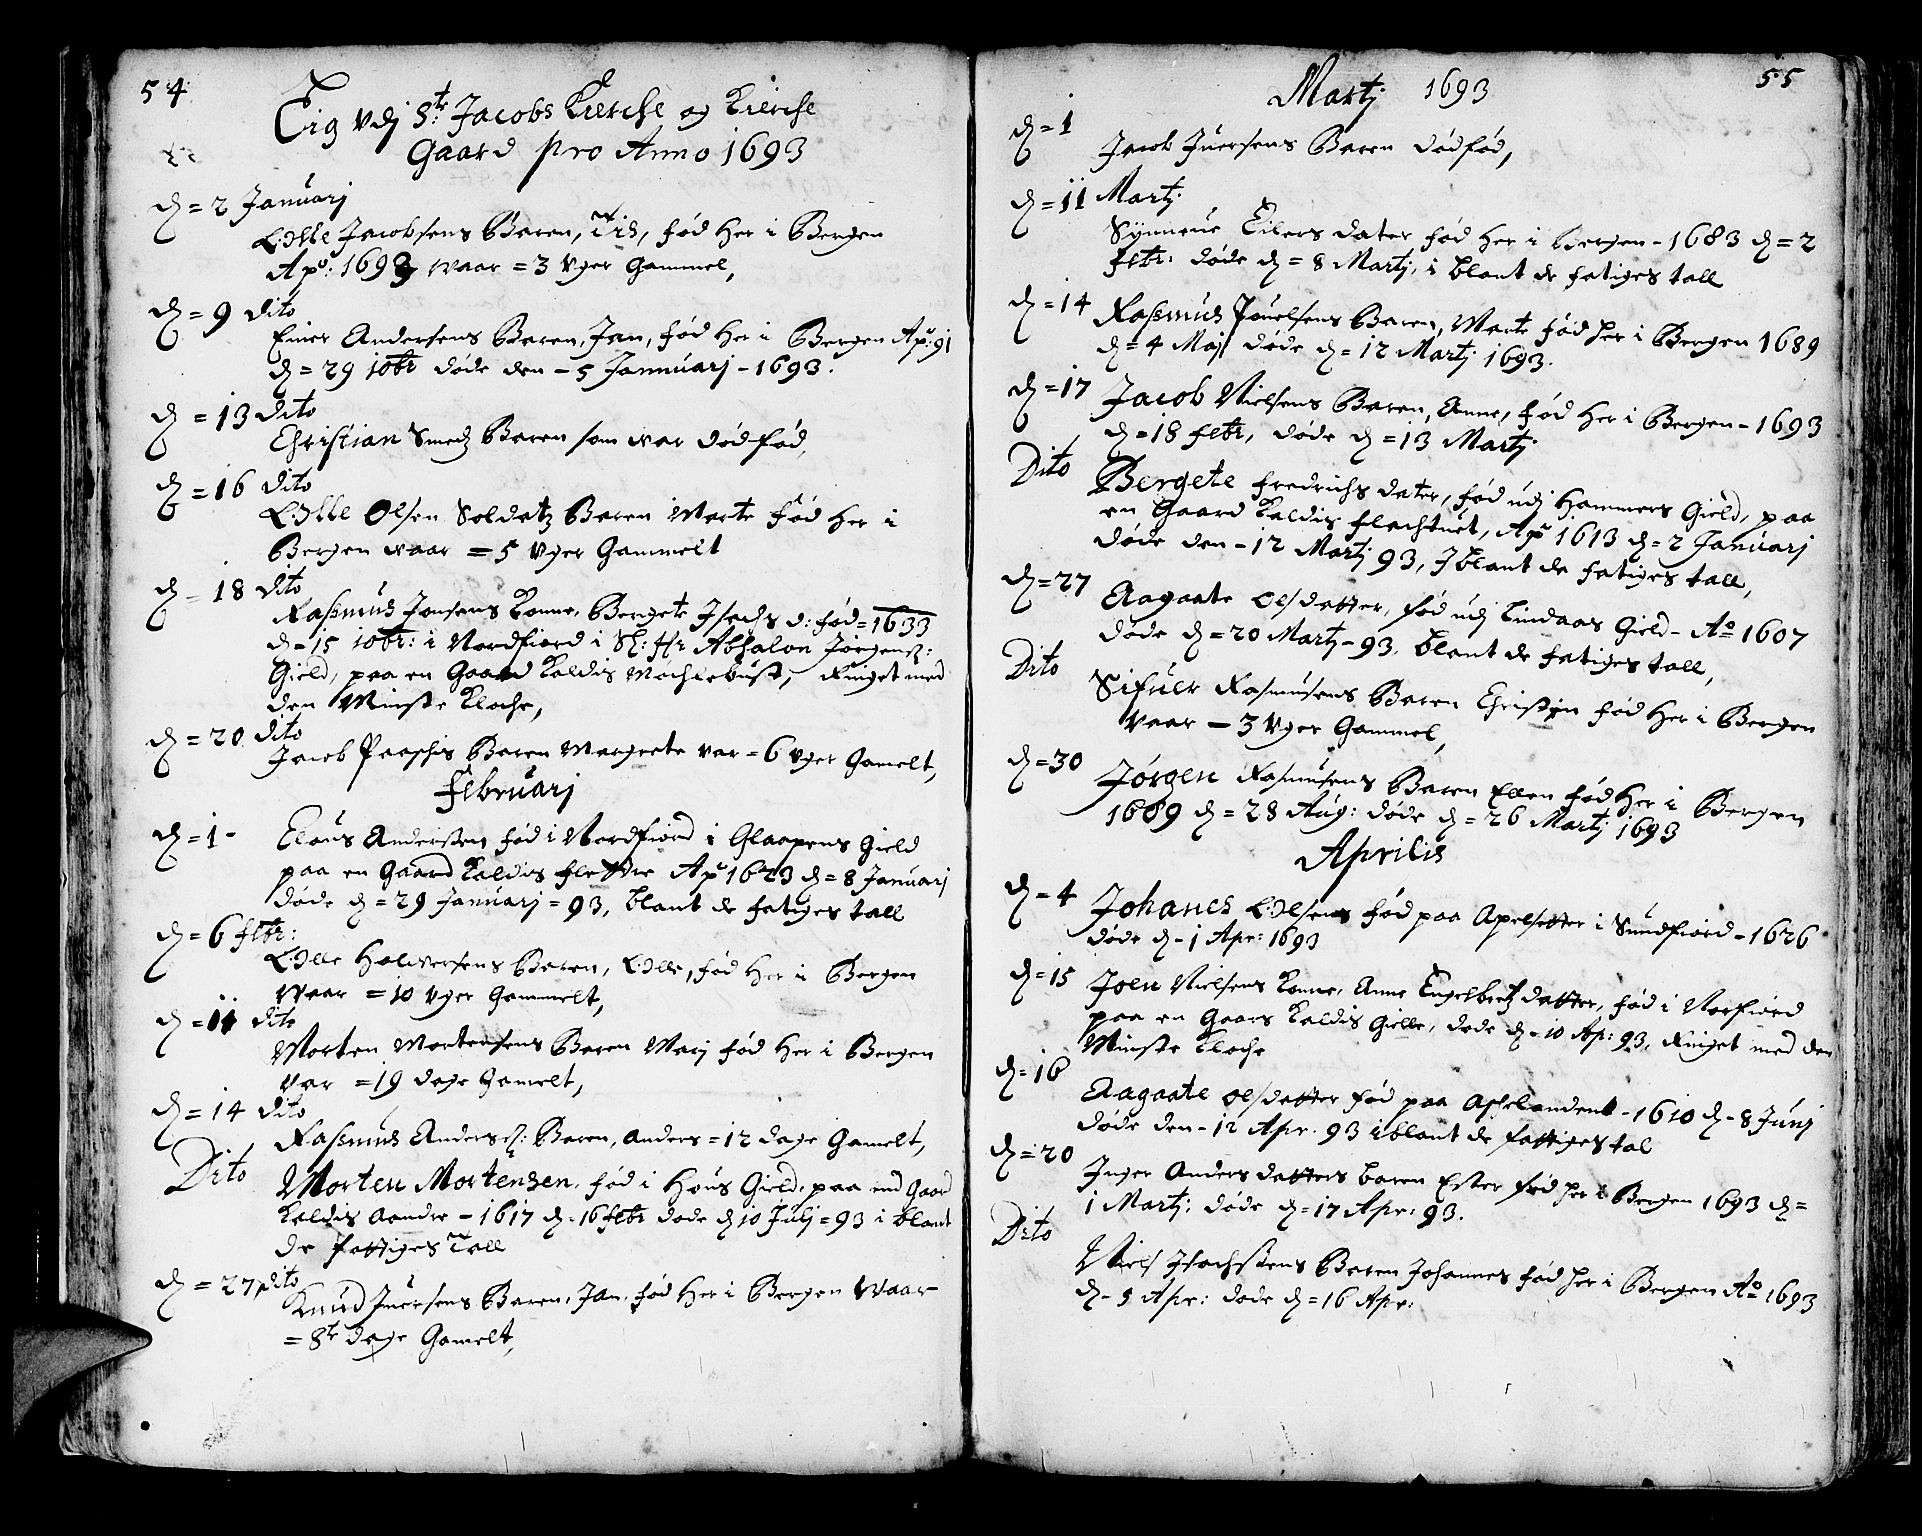 54
Lig vdj Str Jacobs Kierche og Kierche
Gaard pro Anno 1693
D = 2 Januarj
Olle Jacobsens Baren, fød Her i Bergen
Ao: 1693 waar = 3 Vger Gammel,
D = 9 dito
Einer Andersens Baren, Jan, fød Her i Bergen Ao: 91
D = 29 10br døde den - 5 Jannuarj - 1693.
D = 13 dito
Christian Smedz Baren som var dødfød,
D = 16 dito
Olle Olsen Soldatz Baren Marte fød Her i
Bergen waar = 5 Vger Gammelt
D = 18 dito
Rasmus Jonsens Konne, Bergete Isachs d: fød = 1633
D = 15 10br: i Nordfiord i Sl: Hr Absalon Jørgens:
Gield, paa en Gaard Kaldis Mochlebust, Ringet med
den Minste Kloche,
D = 20 dito
Jacob Paaschis Baren Margrete var = 6 Vger Gamelt,
Februarj
D = 1 -
Claus Andersen fød i Nordfiord i Glaapens Gield
paa en Gaard Kaldis Ao 1623 D = 8 Januarj
døde D = 29 Januarj = 93, blant de fatiges tall
D = 6 febr:
Olle Halversens Baren, Olle, fød Her i Bergen
Waar = 10 Vger Gammelt,
D = 11 dito
Morten Mortensens Baren Marj fød Her i Bergen
Var = 19 dage Gamelt,
D = 14 dito
Rasmus Anders: Baren, Anders = 12 dage Gamelt,
Dito
Morten Mortensen, fød i Hous Gield, paa end Gaard
Kaldis Aandre - 1617 D = 16 febr døde D 10 Julj = 93 i blant
de fattiges Tall
D = 27 dito
Knud Juersens Baren, Jan, fød Her i Bergen Waar
= 8te dage Gamelt,
Martj 1693
55
D = 1
Jacob Juersens Baren dødfød,
D = 11 Martj
Synneue Eilers dater fød Her i Bergen - 1683 D = 2
febr: døde D = 8 Martj, i blant de fatiges tall
D = 14
Rasmus Jouelsens Baren, Marte fød Her i Bergen 1689
D = 4 Maj døde D = 12 Martj 1693.
D = 17
Jacob Nielsens Baren, Anne, fød Her i Bergen - 1693
D = 18 febr, døde D = 13 Martj
Dito
Bergete fredrichs dater, fød udj Hammers Gield, paa
en Gaard Kaldis Flachtuet, Ao 1613 D = 2 Januarj
døde den - 12 Martj 93, Iblant de fatiges tall,
D = 27
Aagaate Olsdatter, fød udj Lindaas Gield - Ao 1607
døde D = 20 Martj - 93. blant de fatiges tall,
Dito
Sifuer Rasmusens Baren Christin fød Her i Bergen
Vaar - 3 Vger Gammel,
D = 30
Jørgen Rasmusens Baren Ellen fød Her i Bergen
1689 D = 28 Aug: døde D = 26 Martj 1693
Aprilis
D = 4
Johanes Olsens fød paa Apelsetter i Sundfiord - 1626
døde D - 1 Apr: 1693
D = 15
Joen Nielsens Konne, Anne Engelbretz datter, fød i Norfiord
paa en Gaars Kaldis Gielle, døde D - 10 Ap: 93, Ringet med den
Minste Kloche
D = 16
Aagaate Olsdatter fød paa Aschelanden - 1610 D - 8 Junj
døde den - 12 Apr. 93 iblant de fattiges tal
D = 20
Inger Anders datters baren Ester fød her i Bergen 1693 D =
1 Martj: døde D = 17 Apr: 93.
Dito
Niels Isachsens Baren Johannes fød her i Bergen Ao 1693
D - 5 Apr: døde D = 16 Apr: